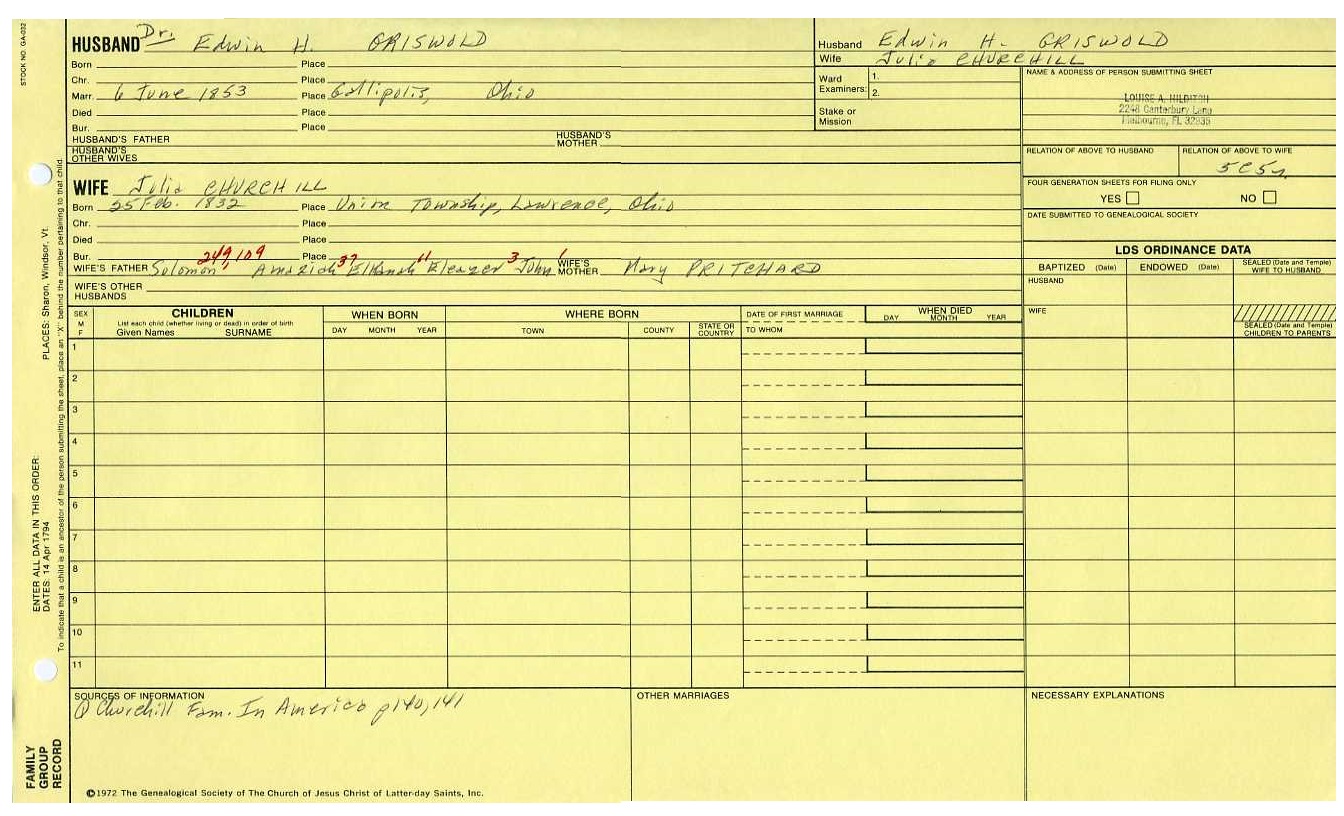 STOCK NO. GA-032
HUSBAND Dr. Edwin H. GRISWOLD
Born Place
Chr. Place
Marr. 6 June 1853 Place Gallipolis, Ohio
Died Place
Bur. Place
HUSBAND'S FATHER HUSBAND'S MOTHER
HUSBAND'S OTHER WIVES
Husband Edwin H. GRISWOLD
Wife Julia CHURCHILL
Ward Examiners: 1.
2.
Stake or Mission
NAME & ADDRESS OF PERSON SUBMITTING SHEET
LOUISE A. HILDITCH
2248 Canterbury Lane
Melbourne, FL 32935
RELATION OF ABOVE TO HUSBAND RELATION OF ABOVE TO WIFE
5C5r
FOUR GENERATION SHEETS FOR FILING ONLY
YES NO
DATE SUBMITTED TO GENEALOGICAL SOCIETY
WIFE Julia CHURCHILL
Born 25 Feb. 1832 Place Union Township, Lawrence, Ohio
Chr. Place
Died Place
Bur. Place
249, 109 37 11 3 1
WIFE'S FATHER Solomon, Amaziah Elkanah Eleazer John WIFE'S MOTHER Mary PRITCHARD
WIFE'S OTHER HUSBANDS
LDS ORDINANCE DATA
BAPTIZED (Date) ENDOWED (Date) SEALED (Date and Temple) WIFE TO HUSBAND
HUSBAND
WIFE
SEALED (Date and Temple) CHILDREN TO PARENTS
SEX M F
CHILDREN
List each child (whether living or dead) in order of birth
Given Names SURNAME
WHEN BORN
DAY MONTH YEAR
WHERE BORN
TOWN COUNTY STATE OR COUNTRY
DATE OF FIRST MARRIAGE
TO WHOM
WHEN DIED
DAY MONTH YEAR
1
2
3
4
5
6
7
8
9
10
11
SOURCES OF INFORMATION
Churchill Fam. In America p140, 141
OTHER MARRIAGES
NECESSARY EXPLANATIONS
©1972 The Genealogical Society of The Church of Jesus Christ of Latter-day Saints, Inc.
FAMILY GROUP RECORD
ENTER ALL DATA IN THIS ORDER:
DATES: 14 Apr 1794
PLACES: Sharon, Windsor, Vt.
To indicate that a child is an ancestor of the person submitting the sheet, place an "X" behind the number pertaining to that child.